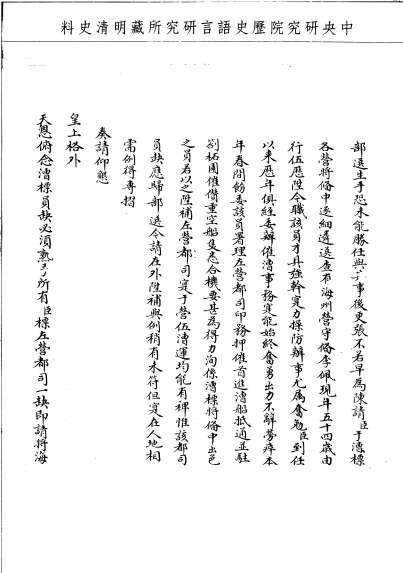 中央研究院歷史語言研究所藏明清史料
部選生手恐未能勝任與其事後更張不若早為陳請臣于漕標
各營將備中逐細遴選查有海州營守備李佩現年五十四歲由
行伍歷陞今職該員才具強幹實力操防辦事尤屬奮勉臣到任
以來歷年俱經委辦催漕事務實能始終奮勇出力不辭勞瘁本
年春間飭委該員署理左營都司印務押催首進漕船抵通並駐
劄柘園催儹重空船隻悉合機要甚為得力洵係漕標將備中出色
之員若以之陞補左營都司實于營伍漕運均能有裨惟該都司
員缺應歸部選今請在外陞補與例稍有未符但實在人地相
需例得專摺
奏請仰懇
皇上格外
天恩俯念漕標員缺必須熟手所有臣標左營都司一缺即請將海